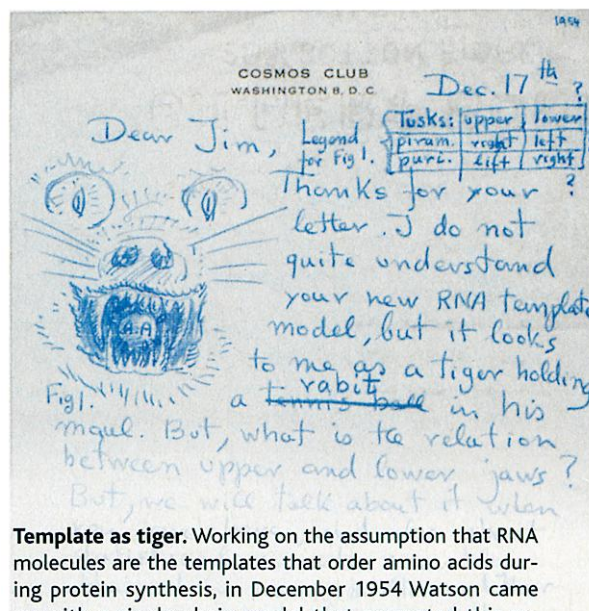 1954
COSMOS CLUB
WASHINGTON 8, D. C.
Dec. 17th
?
Dear Jim,
Legend for Fig 1.
Tusks: upper lower
piram. right left
puri. lift right
?
Thanks for your
letter. I do not
quite understand
your new RNA template
model, but it looks
to me as a tiger holding
a tennis ball rabit in his
A.A
Fig 1.
maul. But, what is the relation
between upper and lower jaws?
But, we will talk about it when
Template as tiger. Working on the assumption that RNA
molecules are the templates that order amino acids dur-
ing protein synthesis, in December 1954 Watson came